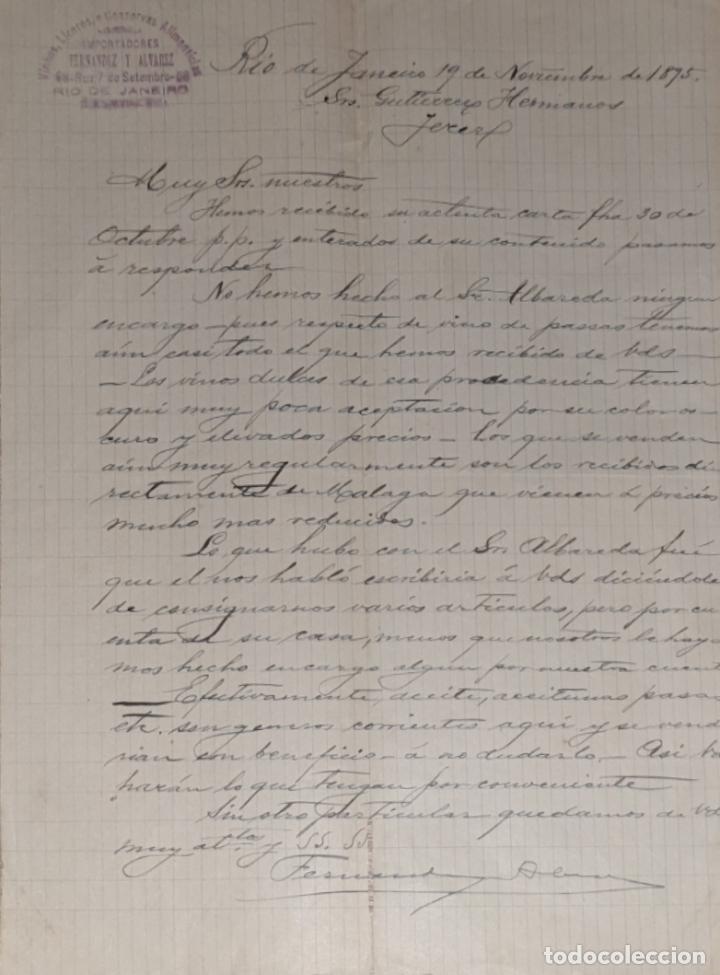 Vinhos, Licores, e Conservas Alimenticias
IMPORTADORES
FERNANDEZ Y ALVAREZ
68-Rua 7 de Setembro-68
RIO DE JANEIRO
Rio de Janeiro 19 de Noviembre de 1895.
Srs. Gutierrez Hermanos
Jerez
Muy Srs. nuestros
Hemos recibido su atenta carta fha 30 de
Octubre p.p. y enterados de su contenido pasamos
á responder
No hemos hecho al Sr. Albareda ningun
encargo - pues respecto de vino de passas tenemos
aún casi todo el que hemos recibido de Vds -
- Los vinos dulces de esa procedencia tienen
aqui muy poca aceptacion por su color os-
curo y elevados precios - Los que se venden
aún muy regularmente son los recibidos di
rectamente de Malaga que vienen á precios
mucho mas reducidos.
Lo que hubo con el Sr. Albareda fué
que el nos habló escribiria á Vds diciéndole
de consignarnos varios articulos, pero por cu
enta de su casa, menos que nosotros le haya
mos hecho encargo algun por nuestra cuent
- Efectivamente, aceite, aceitunas pasa
etc. son generos corrientes aquí y se vend
rian con beneficio - á no dudarlo - Asi Vd
harán lo que tengan por conveniente
Sin otro particular quedamos de Vds
muy att.os y SS. SS.
Fernandez y Alvarez
todocoleccion